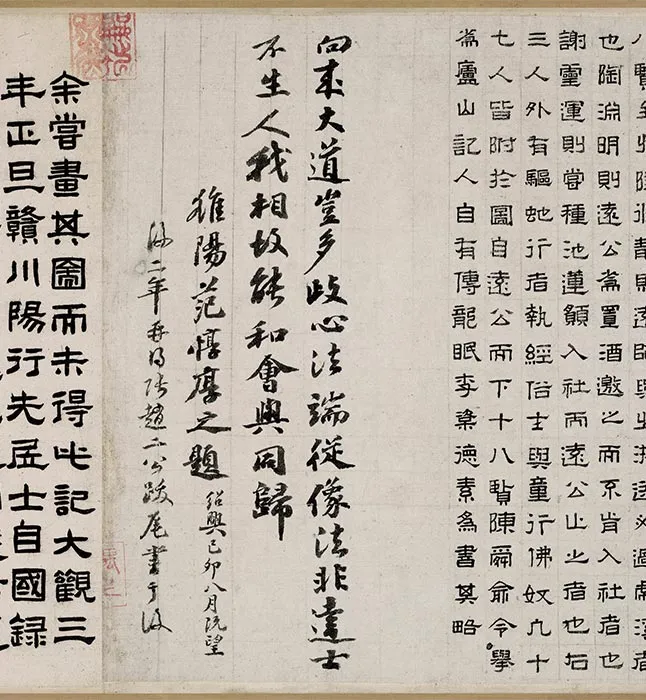 也陶淵明則遠公嘗置酒邀之而不肯入社者也
謝靈運則嘗種池蓮願入社而遠公止之者也右
三人外有驅虵行者執經俗士與童行佛奴凡十
七人皆附於圖自遠公而下十八賢陳舜俞令舉
為廬山記人自有傳龍眠李德素為書其略
向來大道豈多歧心法端從像法非達士
不生人我相故能和會與同歸
雒陽范惇厚之題 紹興己卯八月既望
後二年再得張趙二公跋尾書于後
余嘗畫其圖而未得此記大觀三
年正旦贛川陽行先孟士自國錄